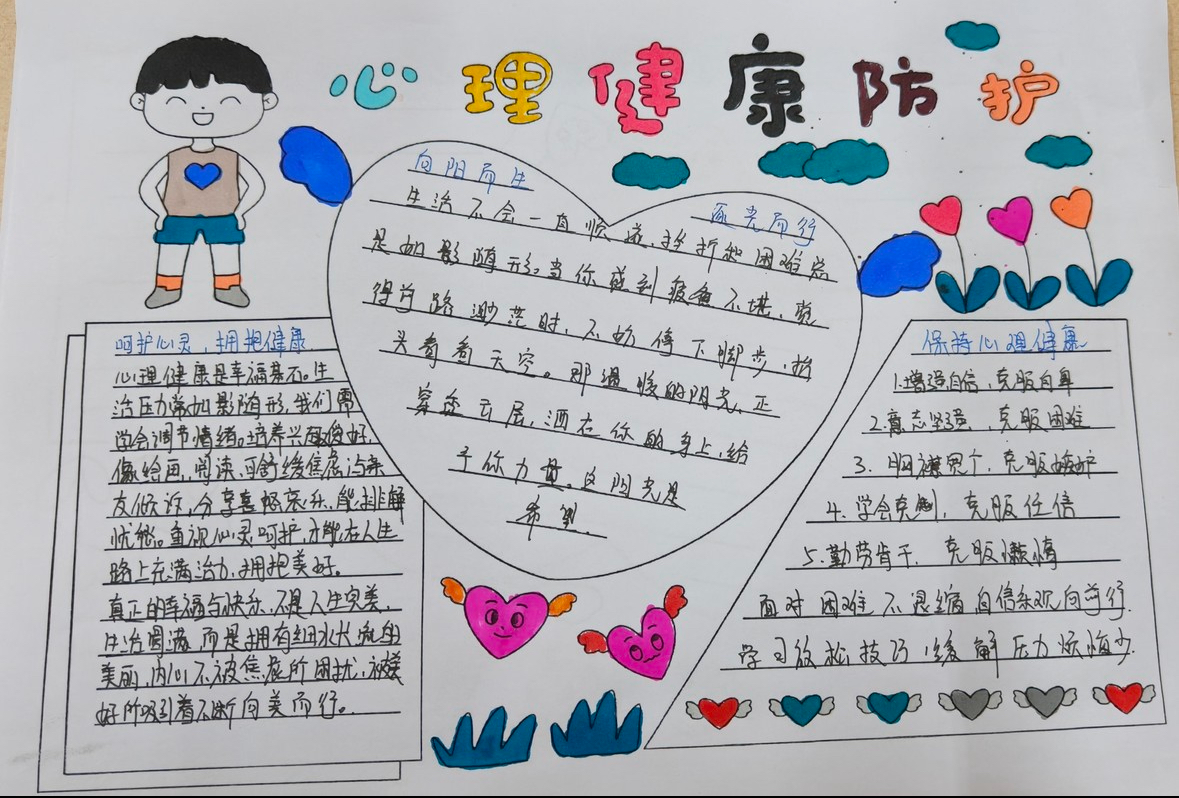 心理健康防护
向阳而生
逐光而行
生活不会一直顺遂,挫折和困难总
是如影随形。当你感到疲惫不堪,觉
得前路渺茫时,不妨停下脚步,抬
头看看天空。那温暖的阳光,正
穿透云层,洒在你的身上,给
予你力量。这阳光是
希望
呵护心灵,拥抱健康
心理健康是幸福基石。生
活压力常如影随形,我们需
学会调节情绪。培养兴趣爱好,
像绘画,阅读,可舒缓焦虑;与亲
友倾诉,分享喜怒哀乐,能排解
忧愁。重视心灵呵护,才能在人生
路上充满活力,拥抱美好。
真正的幸福与快乐,不是人生完美,
生活圆满,而是拥有细水长流的
美丽,内心不被焦虑所困扰,被美
好所吸引着不断向美而行。
保持心理健康
1.增强自信,克服自卑
2.意志坚强,克服困难
3.胸襟宽广,克服嫉妒
4.学会克制,克服任信
5.勤劳肯干,克服懒惰
面对困难不退缩自信乐观向前行.
学习放松技巧,缓解压力烦恼少.